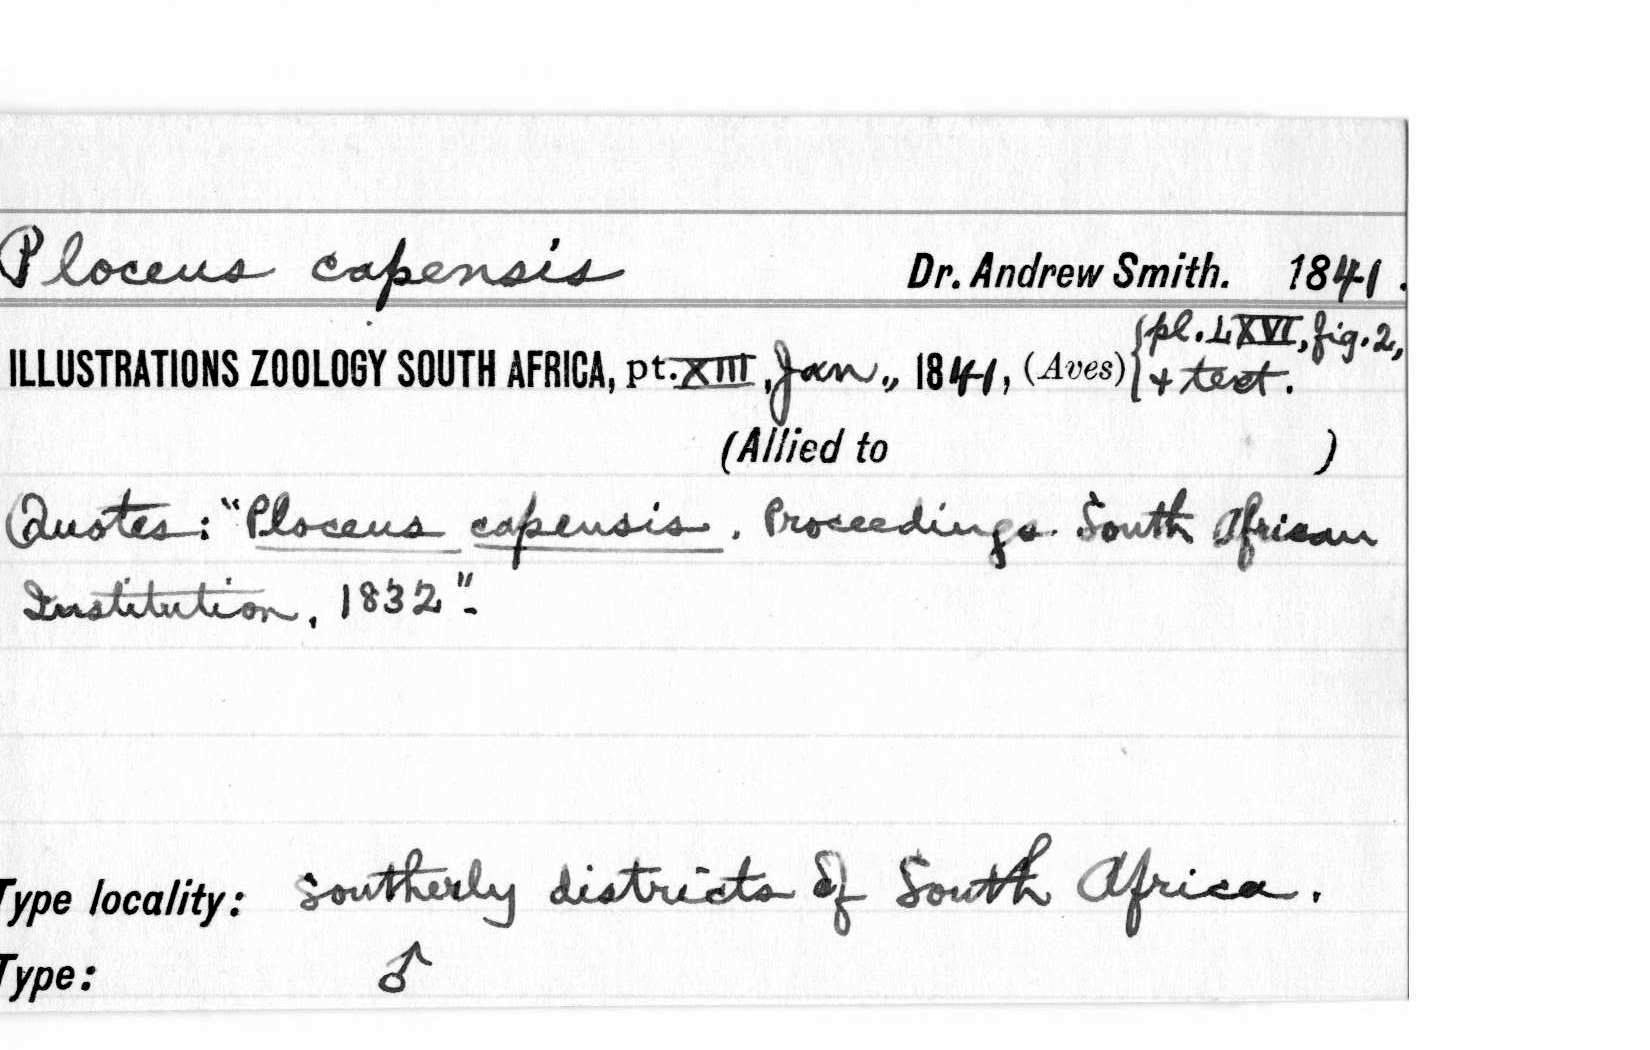 Ploceus capensis Dr. Andrew Smith. 1841.
ILLUSTRATIONS ZOOLOGY SOUTH AFRICA, pt. XIII, Jan., 1841, (Aves) {pl. LXVI, fig. 2,
+ text.
(Allied to )
Quotes: "Ploceus capensis. Proceedings South African
Institution, 1832".
Type locality: Southerly districts of South Africa.
Type: ♂